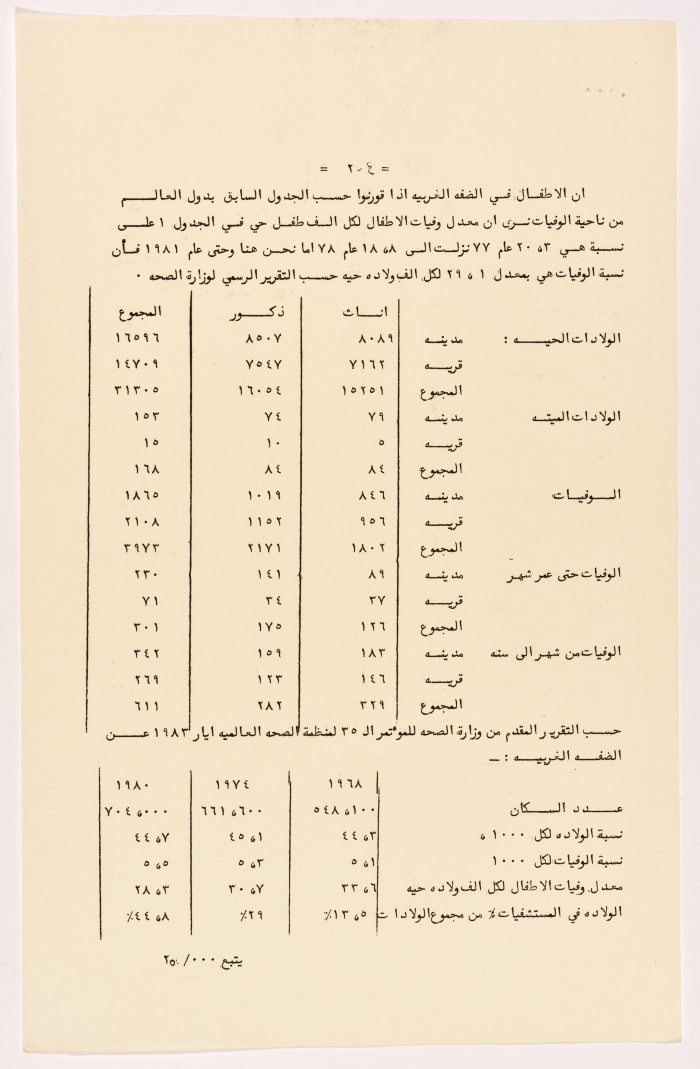 = ٢٠٤ =
ان الاطفال في الضفه الغربيه اذا قورنوا حسب الجدول السابق بدول العالم
من ناحية الوفيات نرى ان معدل وفيات الاطفال لكل الف طفل حي في الجدول ١ على
نسبة هي ٦٣و٢٠ عام ٧٧ نزلت الى ٨و١٨ عام ٧٨ اما نحن هنا وحتى عام ١٩٨١ فأن
نسبة الوفيات هي بمعدل ١و٢٩ لكل الف ولاده حيه حسب التقرير الرسمي لوزارة الصحه ٠
اناث ذكور المجموع
الولادات الحيه : مدينه ٨٠٨٩ ٨٥٠٧ ١٦٥٩٦
قريه ٧١٦٢ ٧٥٤٧ ١٤٧٠٩
المجموع ١٥٢٥١ ١٦٠٥٤ ٣١٣٠٥
الولادات الميته مدينه ٧٩ ٧٤ ١٥٣
قريه ٥ ١٠ ١٥
المجموع ٨٤ ٨٤ ١٦٨
الوفيات مدينه ٨٤٦ ١٠١٩ ١٨٦٥
قريه ٩٥٦ ١١٥٢ ٢١٠٨
المجموع ١٨٠٢ ٢١٧١ ٣٩٧٣
الوفيات حتى عمر شهر مدينه ٨٩ ١٤١ ٢٣٠
قريه ٣٧ ٣٤ ٧١
المجموع ١٢٦ ١٧٥ ٣٠١
الوفيات من شهر الى سنه مدينه ١٨٣ ١٥٩ ٣٤٢
قريه ١٤٦ ١٢٣ ٢٦٩
المجموع ٣٢٩ ٢٨٢ ٦١١
حسب التقرير المقدم من وزارة الصحه للمؤتمر ال ٣٥ لمنظمة الصحه العالميه ايار ١٩٨٣ عن
الضفه الغربيه : ــ
١٩٦٨ ١٩٧٤ ١٩٨٠
عدد السكان ٥٤٨و١٠٠ ٦٦١و٦٠٠ ٧٠٤و٠٠٠
نسبة الولاده لكل ١٠٠٠ و ٣و٤٤ ١و٤٥ ٧و٤٤
نسبة الوفيات لكل ١٠٠٠ ١و٥ ٣و٥ ٥و٥
معدل وفيات الاطفال لكل الف ولاده حيه ٦و٣٣ ٧و٣٠ ٣و٢٨
الولاده في المستشفيات ٪ من مجموع الولادات ٥و١٣٪ ٢٩٪ ٨و٤٤٪
يتبع ٠٠٠/٢٥